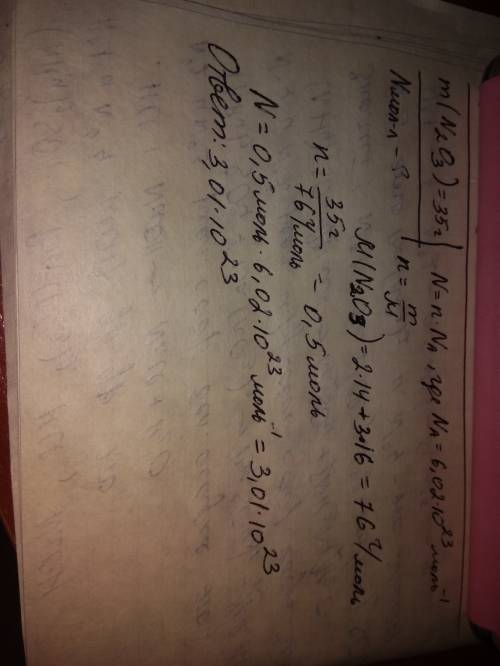 m(N₂O₃)=35г | N=n·Nₐ, где Nₐ=6,02·10²³ моль⁻¹
Nмол-л – ? | n=m/M
M(N₂O₃)=2·14+3·16=76 г/моль
n=35г/76 г/моль = 0,5 моль
N=0,5 моль·6,02·10²³ моль⁻¹=3,01·10²³
Ответ: 3,01·10²³